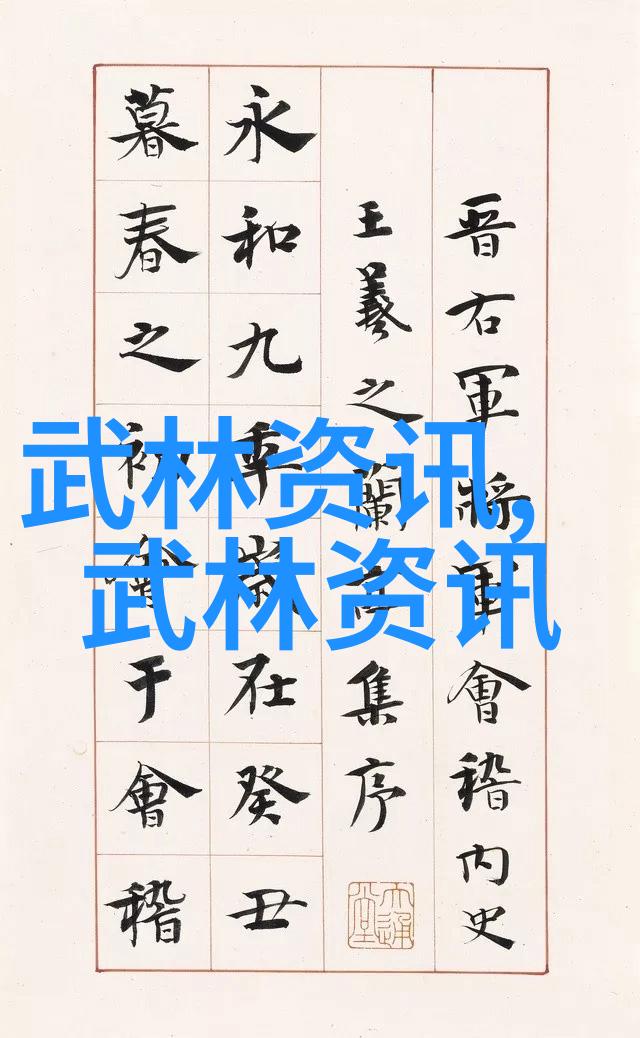 晋右軍將軍會稽内史
王羲之蘭亭集序
永和九年歲在癸丑
暮春之初會于會稽
武林资讯,
武林资讯